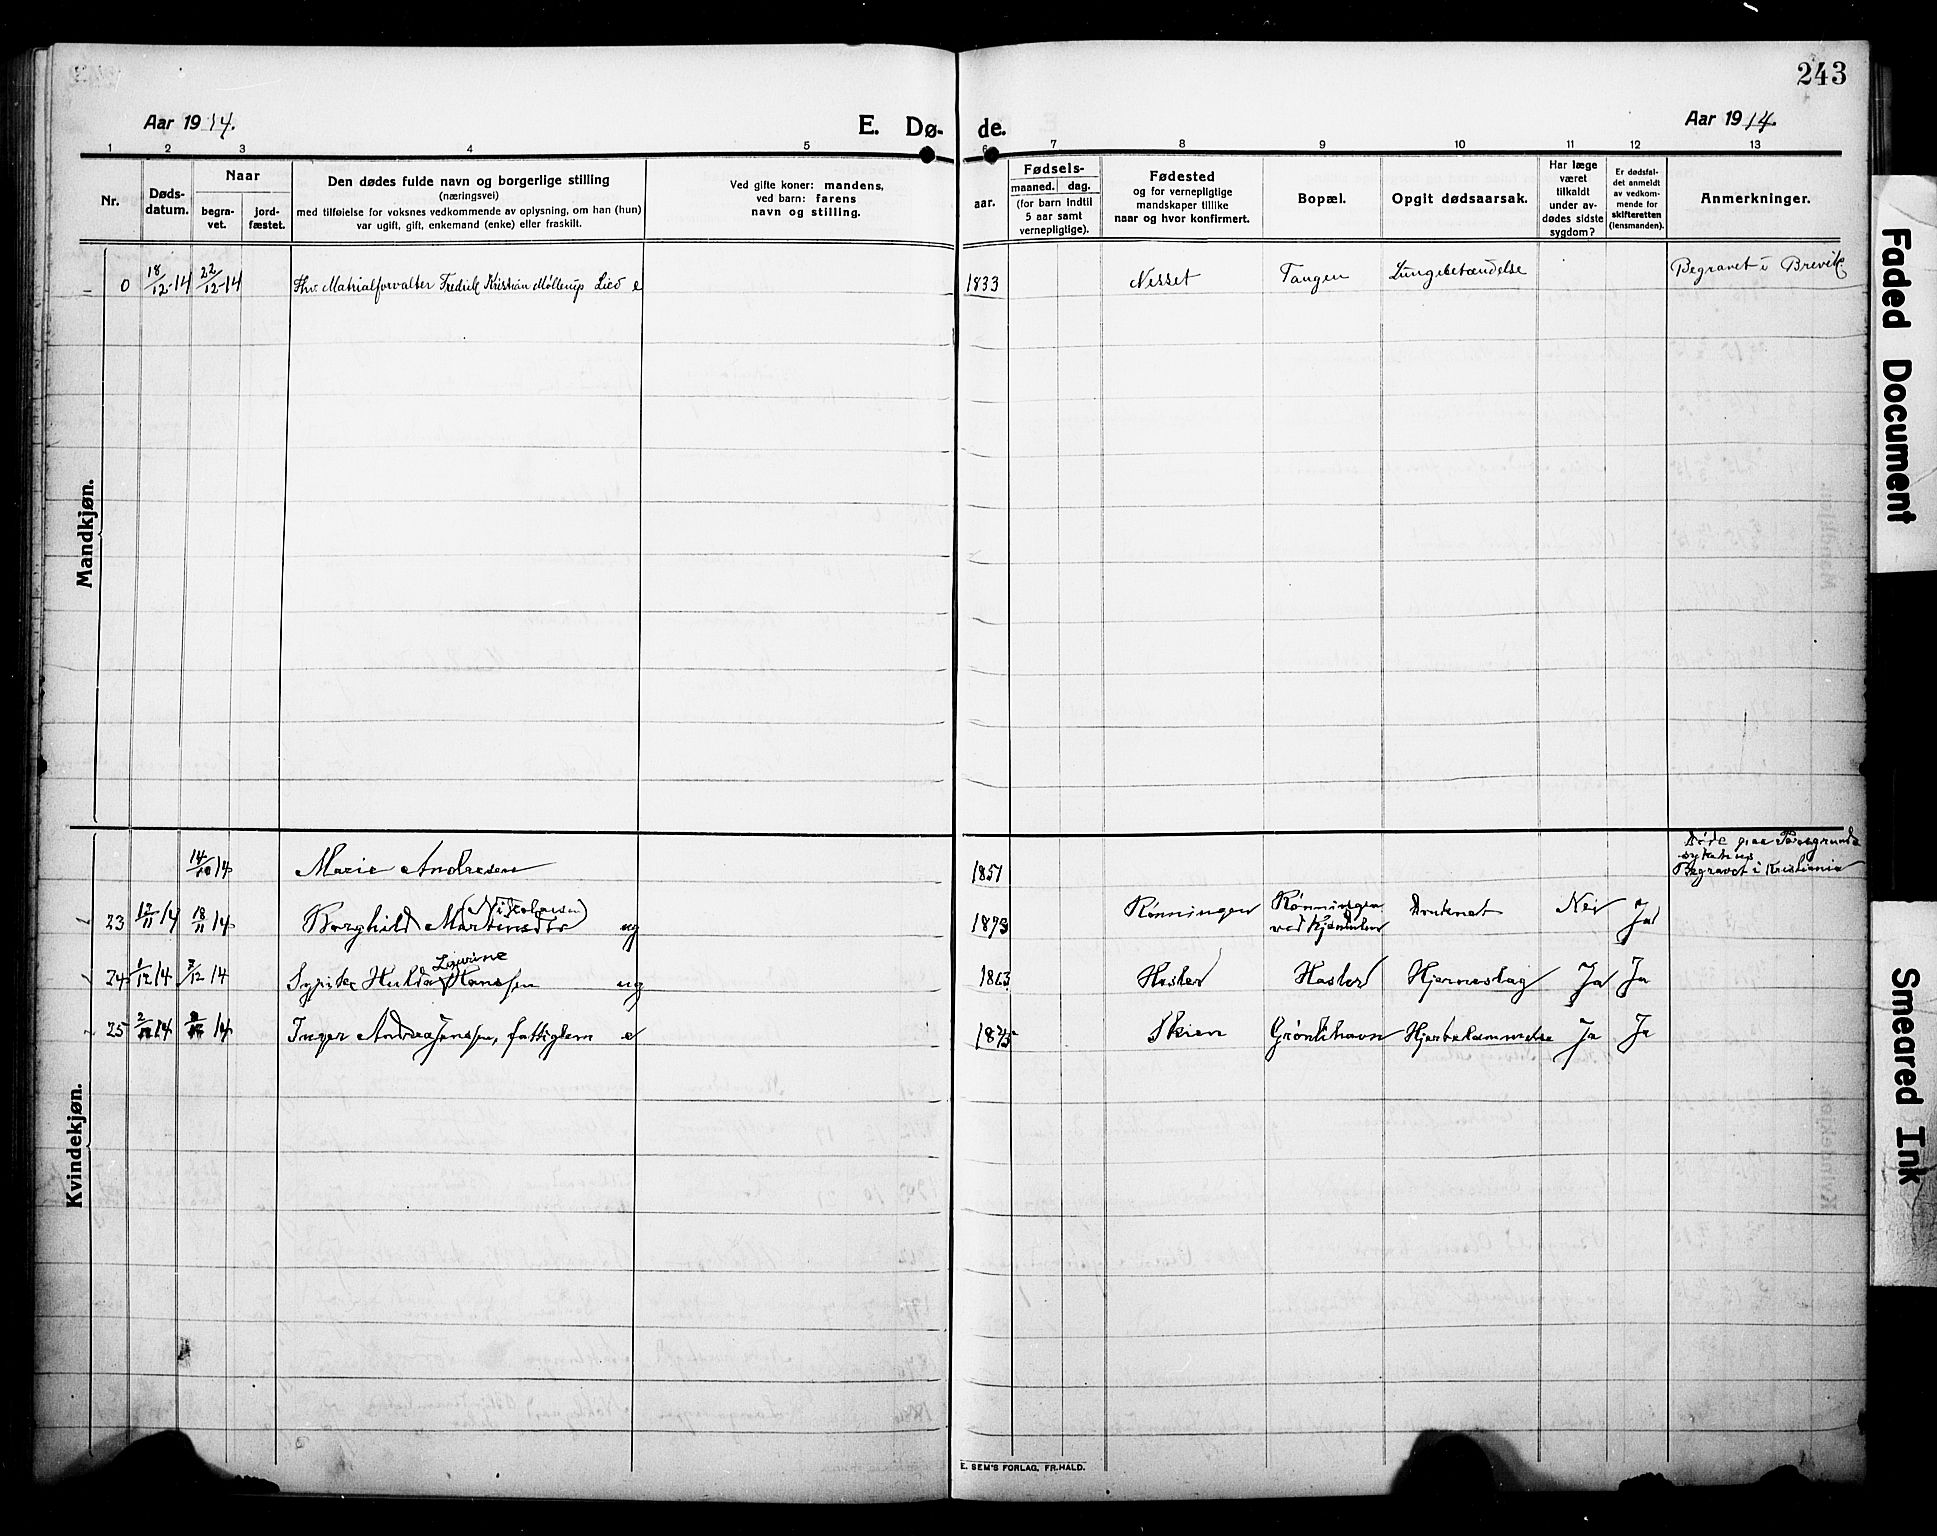 243
Aar 1914.
E. Dø-
de.
Aar 1914.
1 2 3 4 5 6 7 8 9 10 11 12 13
Nr.
Døds-
datum.
Naar
begra-
vet.
jord-
fæstet.
Den dødes fulde navn og borgerlige stilling
(næringsvei)
med tilføielse for voksnes vedkommende av oplysning, om han (hun)
var ugift, gift, enkemand (enke) eller fraskilt.
Ved gifte koner: mandens,
ved barn: farens
navn og stilling.
aar.
Fødsels-
maaned. dag.
(for barn indtil
5 aar samt
vernepligtige).
Fødested
og for vernepligtige
mandskaper tillike
naar og hvor konfirmert.
Bopæl.
Opgit dødsaarsak.
Har læge
været
tilkaldt
under av-
dødes sidste
sygdom?
Er dødsfal-
det anmeldt
av vedkom-
mende for
skifteretten
(lensmanden).
Anmerkninger.
Mandkjøn.
0 18/12-14 22/12-14 Fhv. Matrialforvalter Fredrik Kristian Møllerup Lied e 1833 Nesset Tangen Lungebetændelse Begravet i Brevik.
Kvindekjøn.
14/10 14 Marie Andresen 1851 Døde paa Porsgrunds
sykehus
Begravet i Kristiania
(Nikolaisen)
23 12/11 14 18/11 14 Borghild Martinsdtr ug 1893 Rønningen Rønningen
ved Druknet Nei Ja
24 1/12 14 7/12 14 Hulda Hanssen ug 1863 Hjerneslag Ja Ja
25 14 14 Inger Andrea Jenssen, fattiglem e 1845 Skien Grønlihavn Ja Ja
E. SEM'S FORLAG, FR.HALD.
Faded Document
Smeared Ink